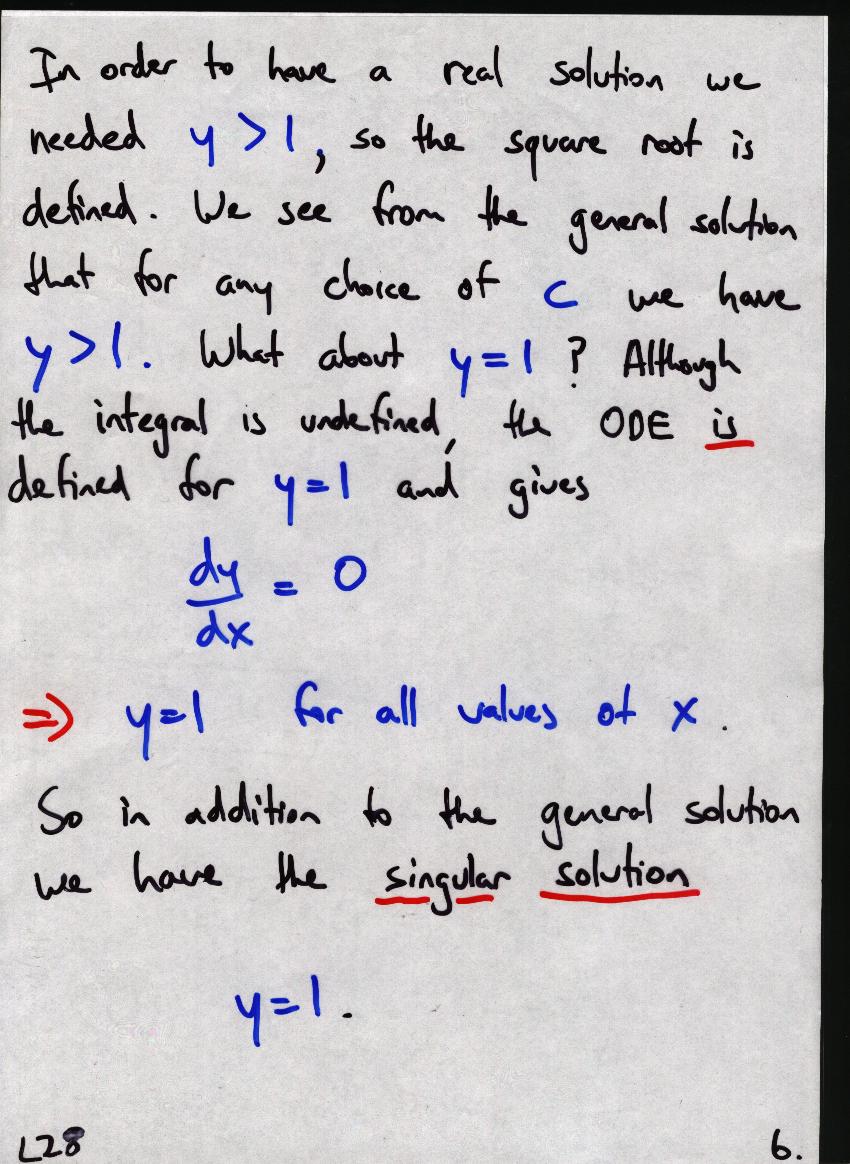 In order to have a real solution we
needed y > 1, so the square root is
defined. We see from the general solution
that for any choice of c we have
y > 1. What about y = 1 ? Although
the integral is undefined, the ODE is
defined for y = 1 and gives
dy
dx = 0
⇒ y = 1 for all values of x.
So in addition to the general solution
we have the singular solution
y = 1.
L28 6.